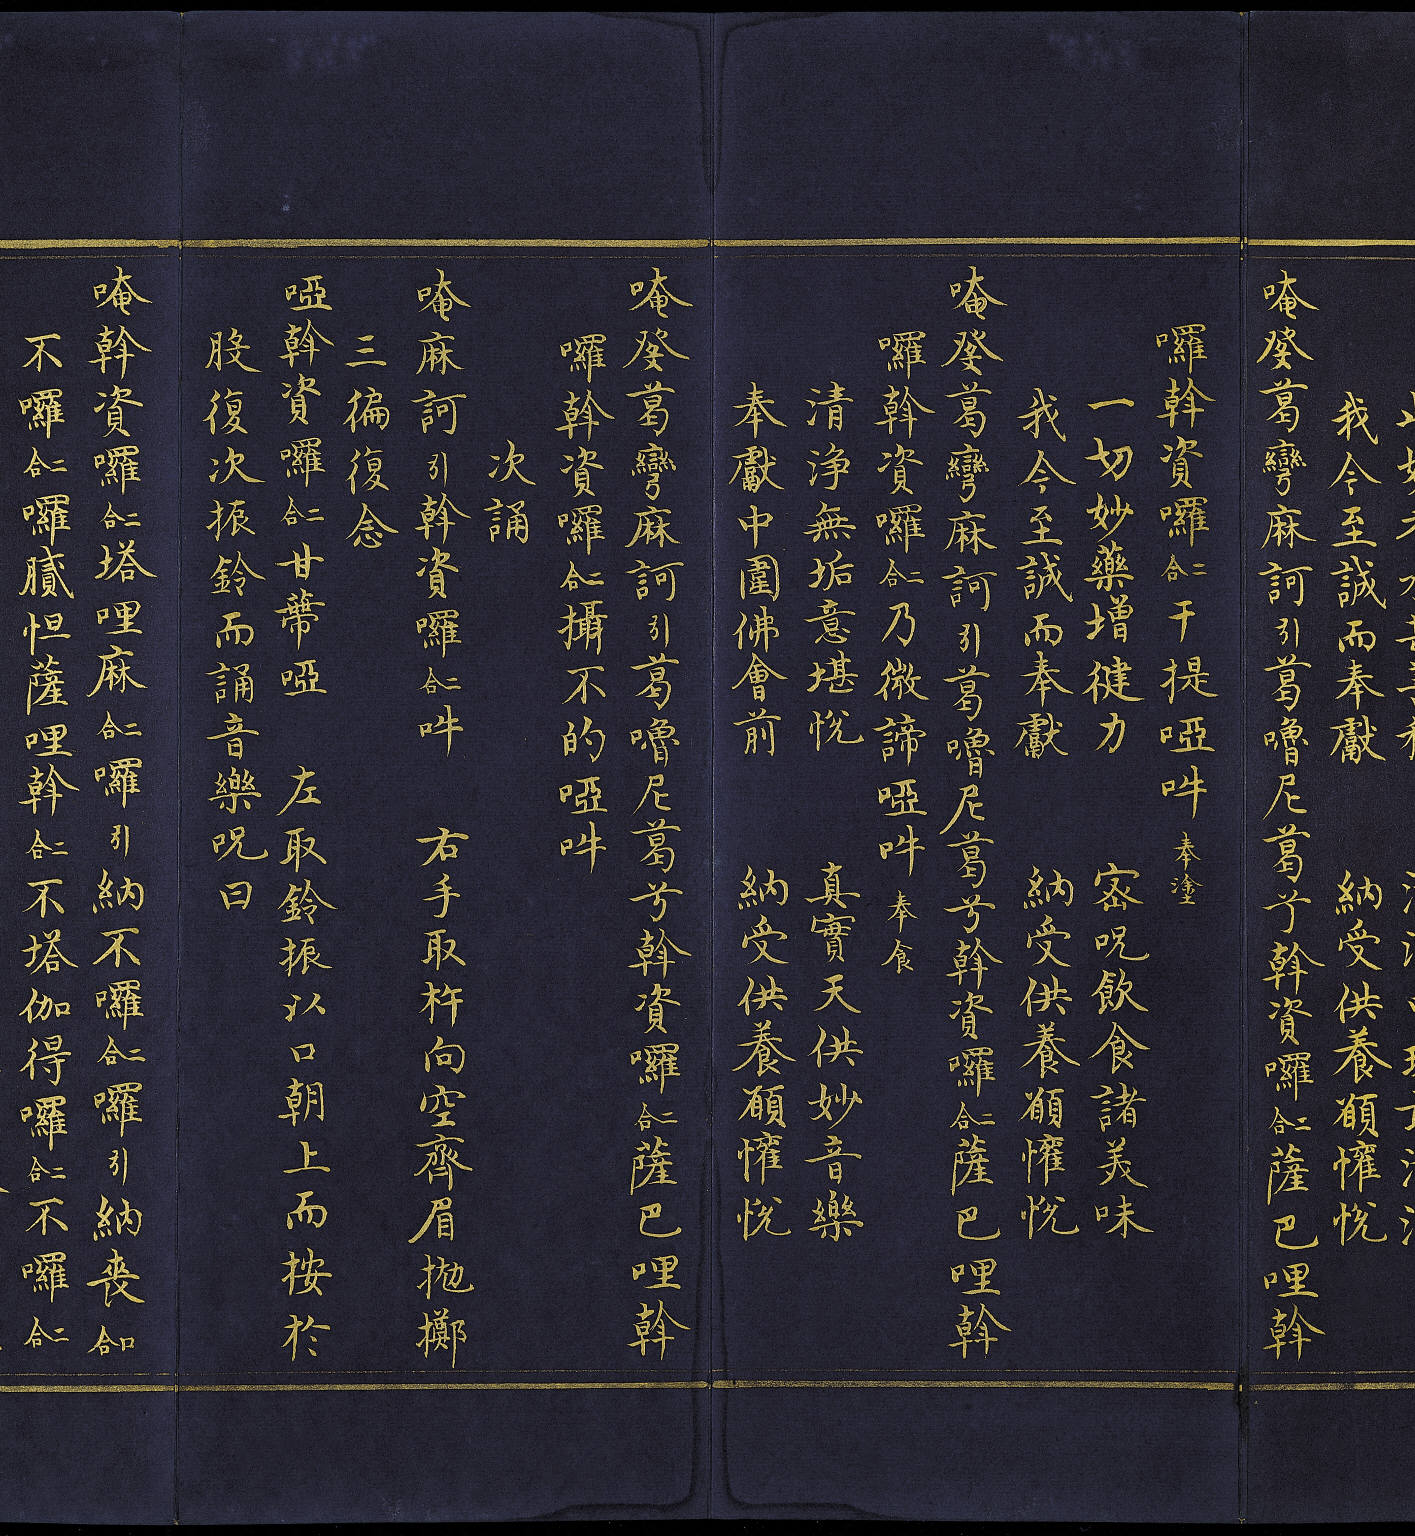 我今至誠而奉獻　納受供養願懽悅
唵癹葛彎麻訶引葛嚕尼葛兮斡資囉二合薩巴哩斡
囉斡資囉二合干提啞吽奉塗
一切妙藥增健力　密呪飲食諸美味
我今至誠而奉獻　納受供養願懽悅
唵癹葛彎麻訶引葛嚕尼葛兮斡資囉二合薩巴哩斡
囉斡資囉二合乃微諦啞吽奉食
清淨無垢意堪悅　真實天供妙音樂
奉獻中圍佛會前　納受供養願懽悅
唵癹葛彎麻訶引葛嚕尼葛兮斡資囉二合薩巴哩斡
囉斡資囉二合攝不的啞吽
次誦
唵麻訶引斡資囉二合吽　右手取杵向空齊眉拋擲
三徧復念
啞斡資囉二合甘蔕啞　左取鈴振以口朝上而按於
股復次振鈴而誦音樂呪曰
唵斡資囉二合塔哩麻二合囉引納不囉二合囉引納丧合口
不囉二合囉膩怛薩哩斡二合不塔伽得囉二合不囉二合